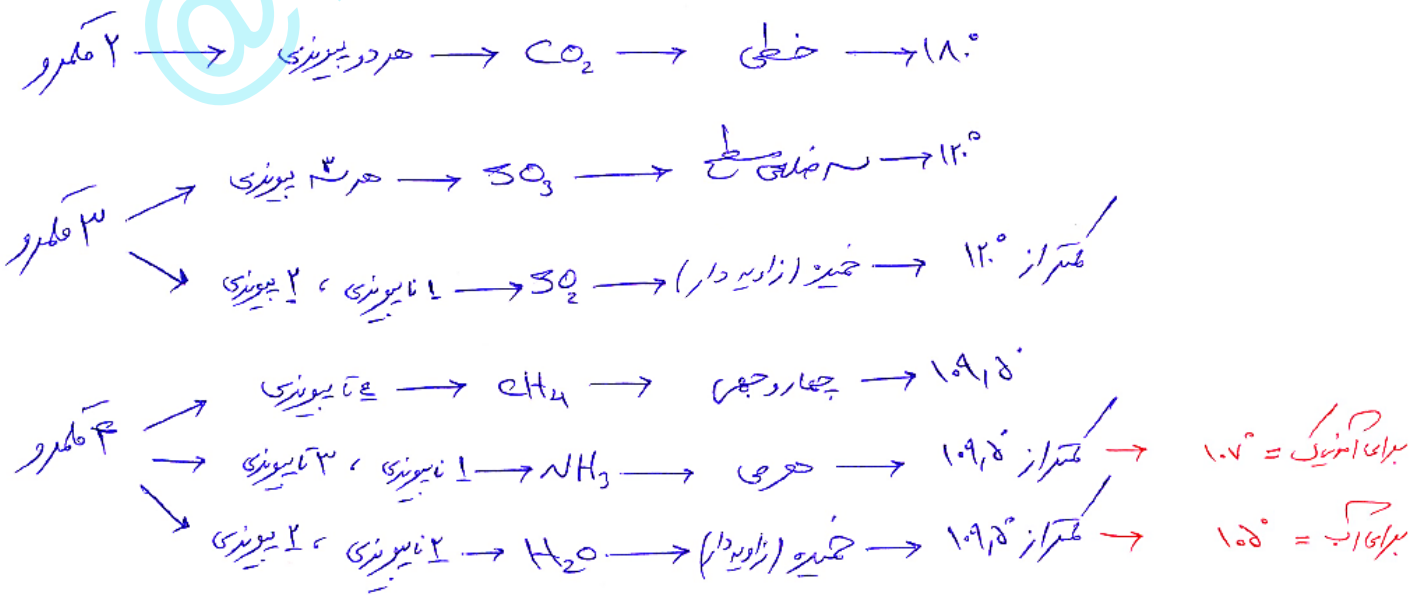 ۲ قلمرو → هر دو پیوندی → CO₂ → خطی → ۱۸۰°
هر سه ۳ پیوندی → SO₃ → سه ضلعی مسطح → ۱۲۰°
۳ قلمرو
۱ ناپیوندی ، ۲ پیوندی → SO₂ → خمیده (زاویه دار) → کمتر از ۱۲۰°
۴ تا پیوندی → CH₄ → چهاروجهی → ۱۰۹,۵°
۴ قلمرو
۱ ناپیوندی ، ۳ تا پیوندی → NH₃ → هرمی → کمتر از ۱۰۹,۵° → برای آمونیاک = ۱۰۷°
۲ ناپیوندی ، ۲ پیوندی → H₂O → خمیده (زاویه دار) → کمتر از ۱۰۹,۵° → برای آب = ۱۰۵°